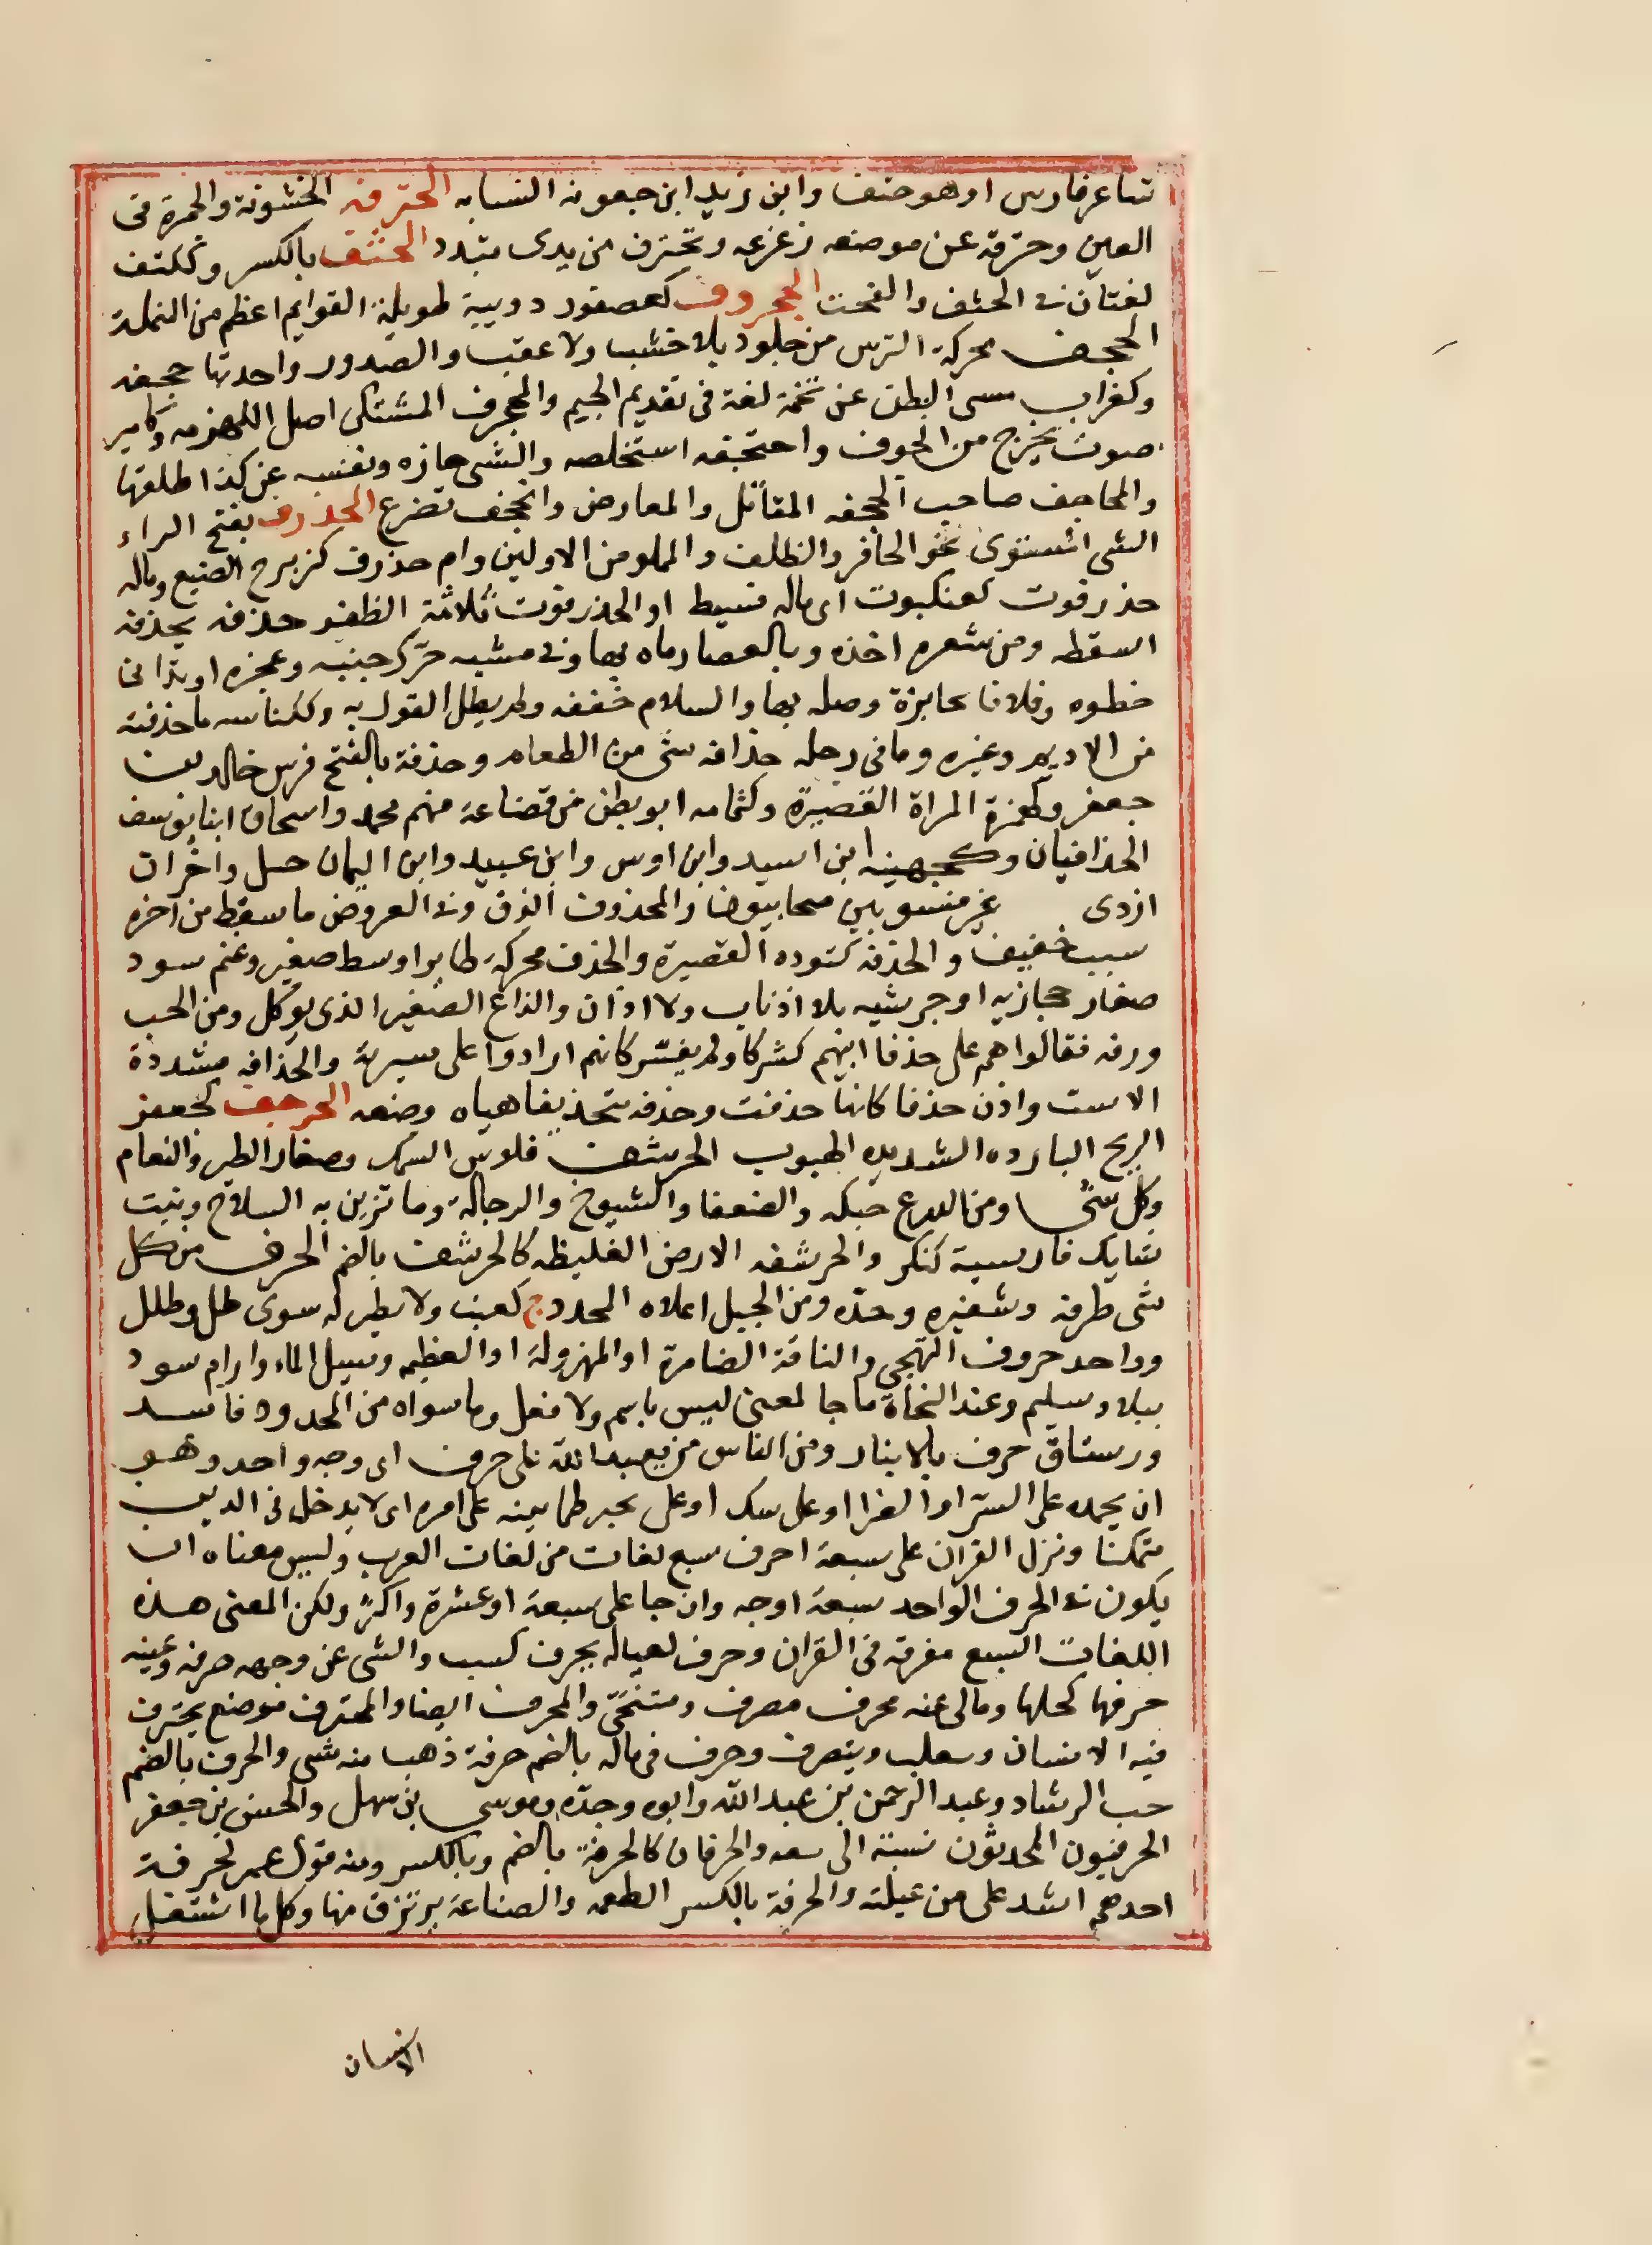 شاعر فارس او هو حنف وابن زيد ابن جعونه النسابه الحترفه الخشونة والحمرة فى
العين وحترفه عن موضعه زعزعه وتحترف من يدى تبدد الحثف بالكسر وككتف
لغتان فى الحثف والفحث الحجروف كعصفور دويبة طويلة القوايم اعظم من النملة
الحجف محركة الترس من جلود بلا خشب ولا عقب والصدور واحدتها حجفه
وكغراب مسى البطن عن تخمة لغة فى تقديم الجيم والمحجرف المشتكى اصل اللهزمه وكامير
صوت يخرج من الجوف واحتجفه استخلصه والشى حازه ونفسه عن كذا طلقها
والمحاجف صاحب الحجفه المقاتل والمعارض وانحجف تضرع الحذرف بفتح الراء
الشى المستوى نحو الحافر والظلف والمملو من الاولين وام حذرف كزبرج الضبع وماله
حذرفوت كعنكبوت اى ماله فسيط او الحذرفوت ثلاثة الظفر حذفه يحذفه
اسقطه ومن شعره اخذه وبالعصا رماه بها وفى مشيه حرّك جنبيه وعجزه او تدانى
خطوه وفلانا بجايزة وصله بها والسلام خففه ولم يطل القول به وككناسه ما حذفته
من الاديم وغيره وما فى رحله حذافه شى من الطعام وحذفة بالفتح فرس خالد بن
جعفر وكهمزة المراة القصيرة وكثمامه ابو بطن من قضاعة منهم محمد واسحاق ابنا يوسف
الحذافيان وكجهينه ابن اسيد وابن اوس وابن عبيد وابن اليمان حسل واخران
ازدى غير منسوبين صحابيون والمحذوف الزق وفى العروض ما سقط من آخره
سبب خفيف والحذفه كتوده القصيرة والحذف محركة طاير او بط صغير وغنم سود
صغار حجازيه او جرشيه بلا اذناب ولا اذان والزاغ الصغير الذى يوكل ومن الحب
ورقه فقالوا هم على حذفا ابيهم كشركا ولم يفسّر كانهم ارادوا على سيرته والحذافه مشددة
الاست واذن حذفا كانها حذفت وحذفه تحذيفا هياه وصنعه الحرجف كجعفر
الريح البارده الشديده الهبوب الحرشف فلوس السمك وصغار الطير والنعام
وكل شى ومن الدرع حبكه والضعفا والشيوخ والرجالة وما تزين به السلاح ونبت
شايك فارسية كنكر والحرشفه الارض الغليظه كالحرشف بالضم الحرف من كل
شى طرفه وشفيره وحدّه ومن الجبل اعلاه المحدد ج كعنب ولا نظير له سوى طل وطلل
وواحد حروف التهجى والناقة الضامرة او المهزولة او العظيمه ومسيل الماء وارام سود
ببلاد سليم وعند النحاة ما جا لمعنى ليس باسم ولا فعل وما سواه من الحدود فاسد
ورستاق حرف بالانبار ومن الناس من يعبد الله على حرف اى وجه واحد وهو
ان يحمده على السرّا او الضرا او على شك او على غير طمانينه على امره اى لا يدخل فى الدين
متمكنا ونزل القران على سبعة احرف سبع لغات من لغات العرب وليس معناه ان
يكون فى الحرف الواحد سبعة اوجه وان جا على سبعة او عشرة واكثر ولكن المعنى هذه
اللغات السبع مفرقة فى القران وحرف لعياله يحرف كسب والشى عن وجهه صرفه وعينه
حرفها كحلها ومالى عنه محرف مصرف ومتنحّى والمحرف ايضا والمحترف موضع يحترف
فيه الانسان ويتقلب ويتصرف وحرف فى ماله بالضم حرفة ذهب منه شى والحرف بالضم
حب الرشاد وعبد الرحمن بن عبد الله وابوه وجدّه وموسى بن سهل والحسن بن جعفر
الحرفيون المحدثون نسبة الى بيعه والحرمان كالحرفة بالضم وبالكسر ومنه قول عمر لحرفة
احدهم اشد على من عيلته والحرفة بالكسر الطعمه والصناعة يرتزق منها وكل ما اشتغل
الانسان